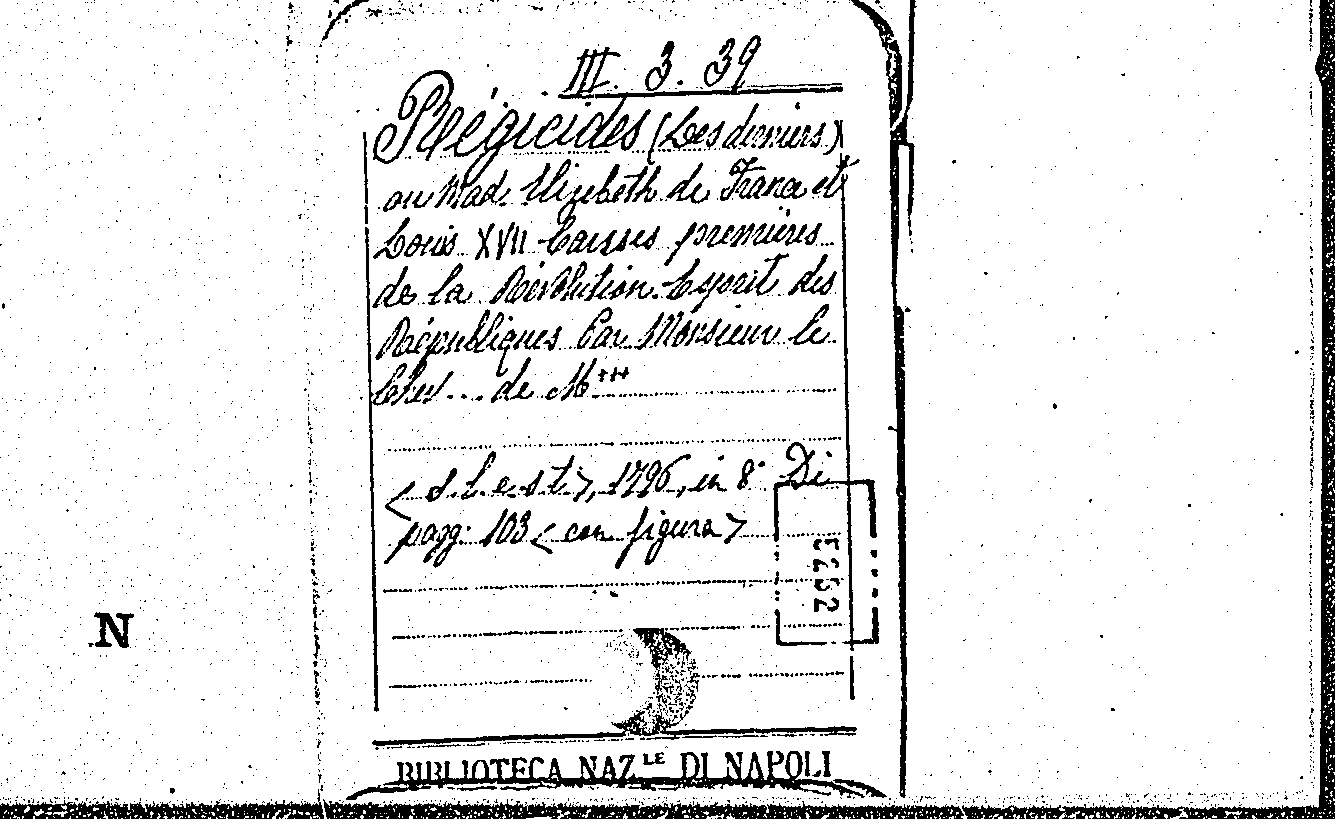 III. 3. 39
Régicides (Les derniers)
ou Mad. Elizebeth de France et
Louis XVII Causses premières
de la Révolution. Esprit des
Républiques Par Monsieur le
Chev... de M***
< s. l. e. s. t. >, 1796, in 8° Di
pagg. 103 < con figura >
N
BIBLIOTECA NAZ.LE DI NAPOLI